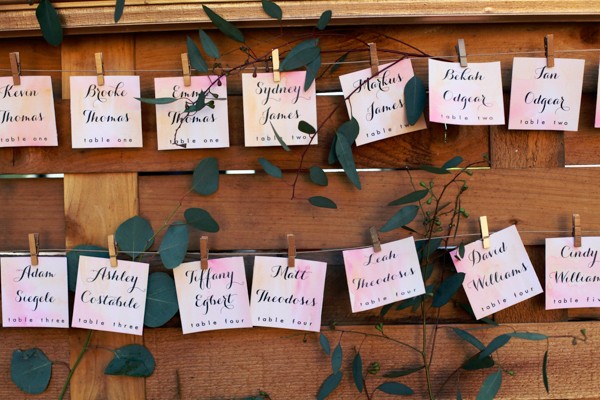 Kevin
Thomas
table one
Brooke
Thomas
table one
Emma
Thomas
table
Sydney
James
table two
Markus
James
table two
Bekah
Odgear
table two
Ian
Odgear
table two
Adam
Siegele
table three
Ashley
Costabile
table three
Tiffany
Egbert
table four
Matt
Theodosis
table four
Leah
Theodosis
table four
David
Williams
table four
Cindy
Williams
table five